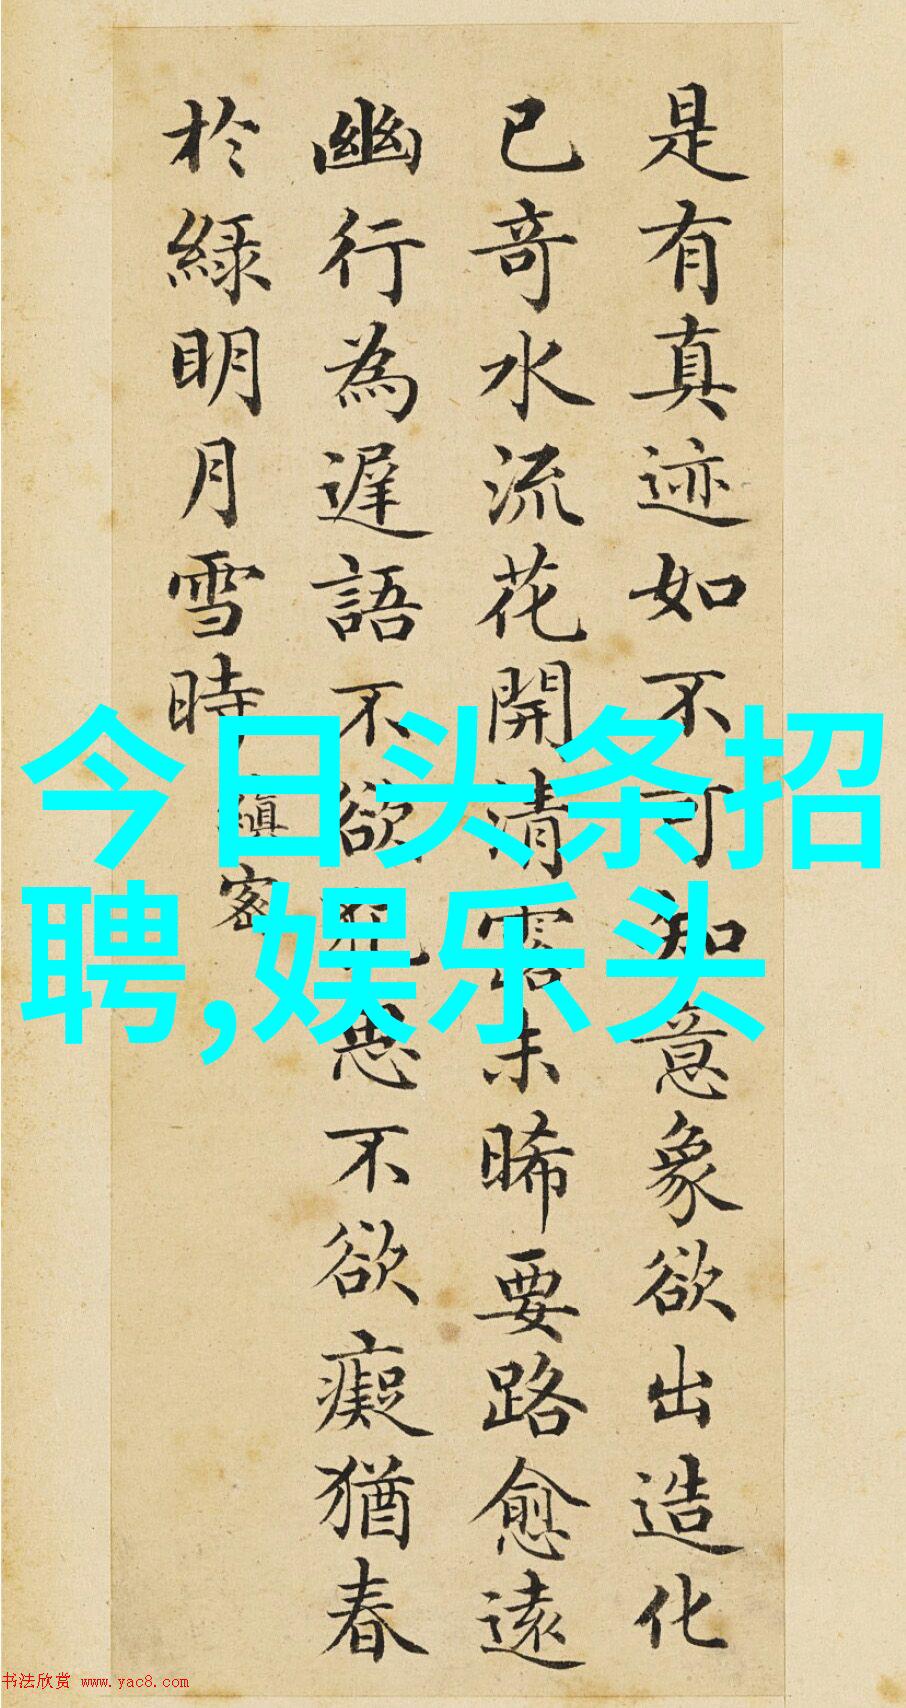 是有真迹如不可知意象欲出造化
已奇水流花開清露未晞要路愈遠
幽行為遲語不欲犯思不欲癡猶春
於綠明月雪時
縝密
今日头条招
聘,娱乐头
书法欣赏 www.yac8.com